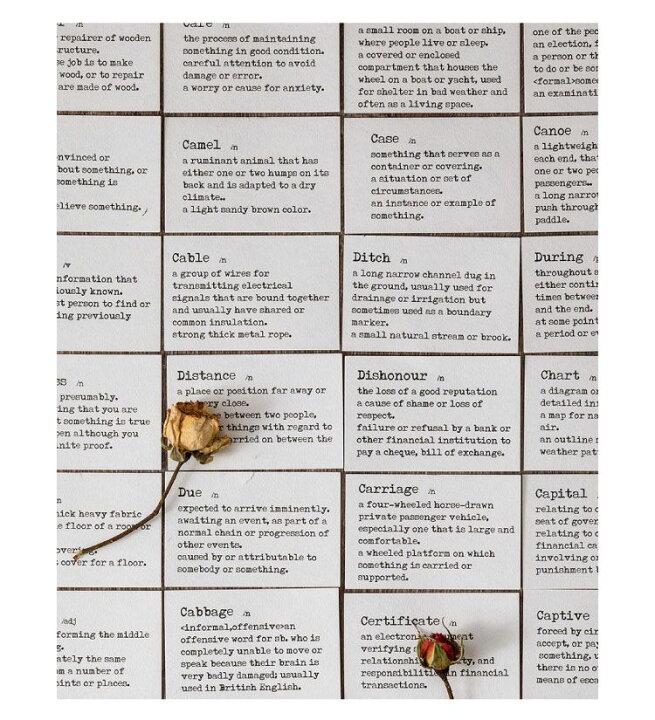 /n
repairer of wooden
ructure.
se job is to make
wood, or to repair
are made of wood.
Care /n
the process of maintaining
something in good condition.
careful attention to avoid
damage or error.
a worry or cause for anxiety.
a small room on a boat or ship,
where people live or sleep.
a covered or enclosed
compartment that houses the
wheel on a boat or yacht, used
for shelter in bad weather and
often as a living space.
one of the peo
an election, f
a person or th
to do or be so
<formal>some
an examinati
nvinced or
bout something, or
something is
elieve something.
Camel /n
a ruminant animal that has
either one or two humps on its
back and is adapted to a dry
climate..
a light sandy brown color.
Case /n
something that serves as a
container or covering.
a situation or set of
circumstances.
an instance or example of
something.
Canoe /n
a lightweigh
each end, that
one or two peo
passengers..
a long narrow
push through
paddle.
/v
nformation that
iously known.
st person to find or
ing previously
Cable /n
a group of wires for
transmitting electrical
signals that are bound together
and usually have shared or
common insulation.
strong thick metal rope.
Ditch /n
a long narrow channel dug in
the ground, usually used for
drainage or irrigation but
sometimes used as a boundary
marker.
a small natural stream or brook.
During
throughout s
either contin
times between
and the end.
at some point
a period or ev
ss /n
presumably.
ing that you are
t something is true
en although you
nite proof.
Distance /n
a place or position far away or
very close.
between two people,
things with regard to
carried on between the
Dishonour /n
the loss of a good reputation
a cause of shame or loss of
respect.
failure or refusal by a bank or
other financial institution to
pay a cheque, bill of exchange.
Chart /n
a diagram or
detailed in
a map for na
air.
an outline m
weather pat
/n
hick heavy fabric
e floor of a room or
overing.
cover for a floor.
Due /n
expected to arrive imminently.
awaiting an event, as part of a
normal chain or progression of
other events.
caused by or attributable to
somebody or something.
Carriage /n
a four-wheeled horse-drawn
private passenger vehicle,
especially one that is large and
comfortable.
a wheeled platform on which
something is carried or
supported.
Capital
relating to o
seat of gover
relating to o
financial ca
involving o
punishment b
/adj
forming the middle
g.
ately the same
m a number of
oints or places.
Cabbage /n
<informal,offensive>an
offensive word for sb. who is
completely unable to move or
speak because their brain is
very badly damaged; usually
used in British English.
Certificate /n
an electronic document
verifying
relationship
responsibilities in financial
transactions.
Captive
forced by cir
accept, or pay
something, u
there is no o
means of esca